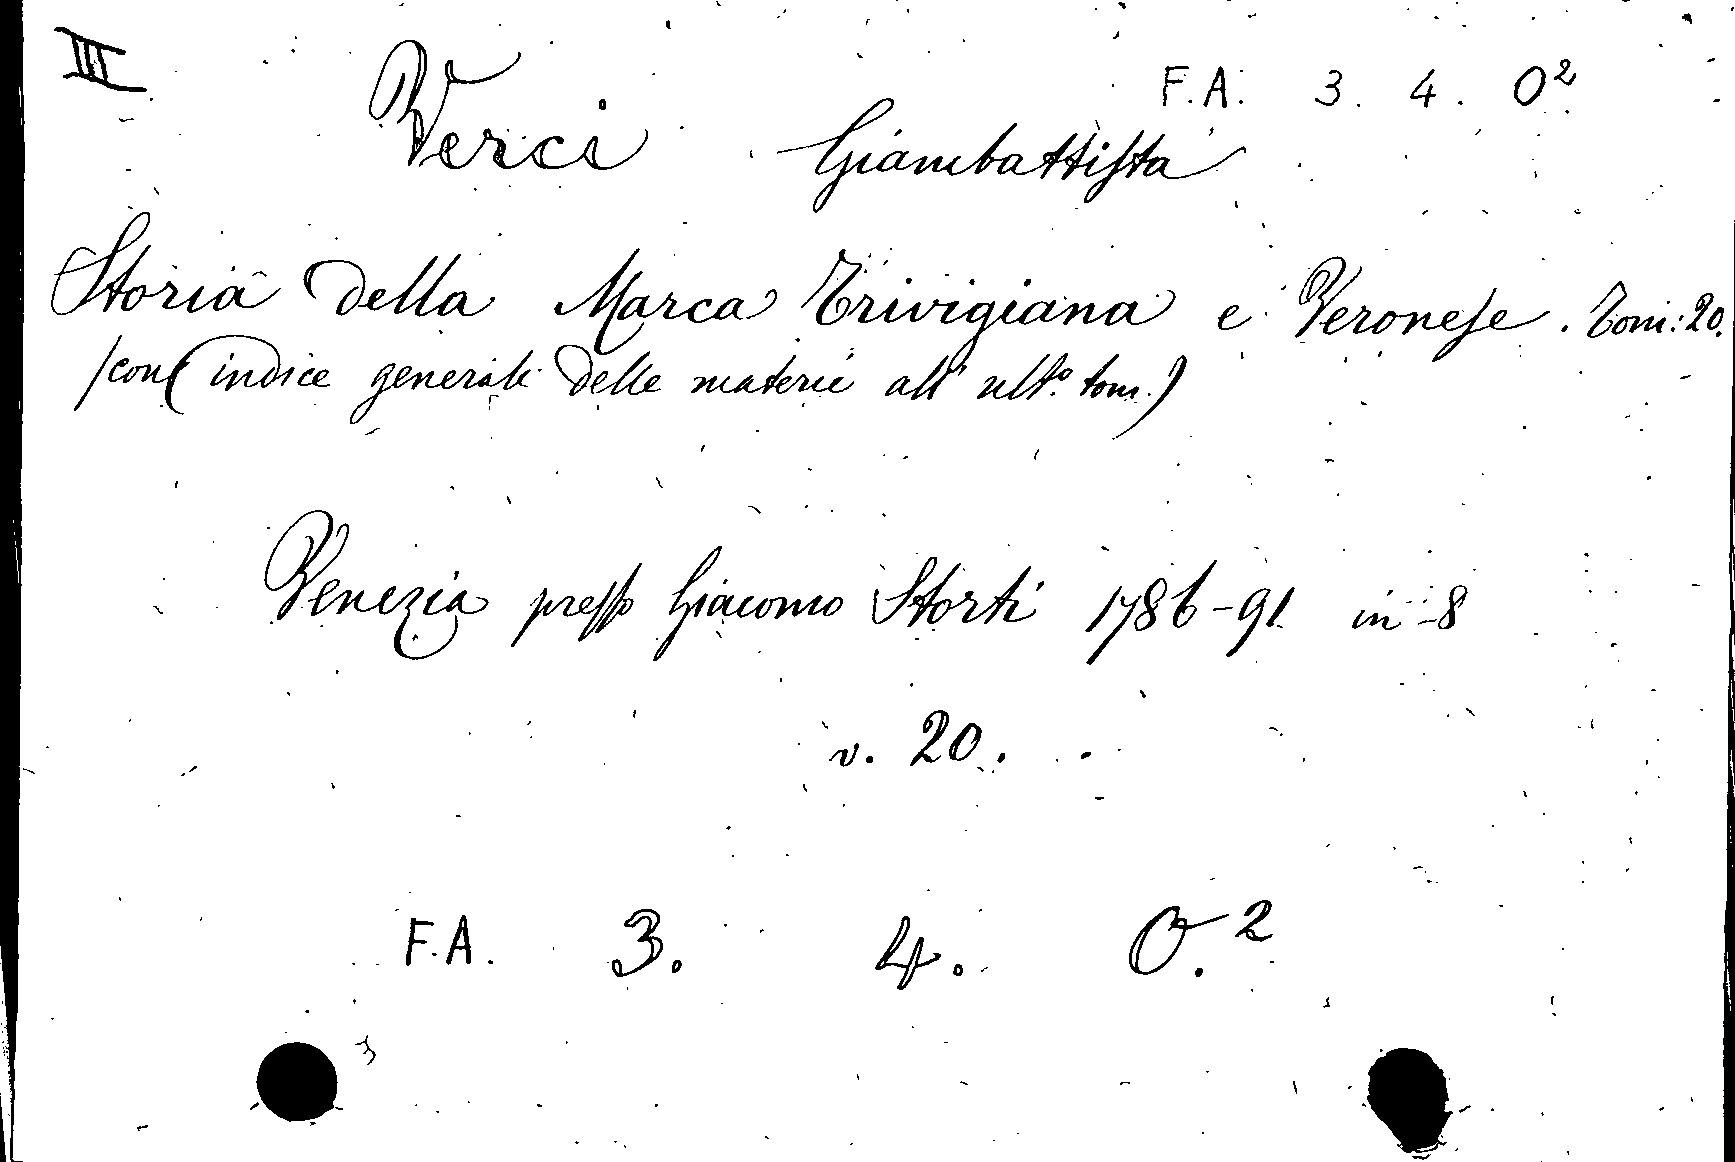 III
F.A. 3. 4. O²
Verci Giambattista
Storia della Marca Trivigiana e Veronese. Tomi: 20.
(con indice generale delle materie all' ult.º tom.)
Venezia presso Giacomo Storti 1786-91 in-8
v. 20.
F.A. 3. 4. O.²
3